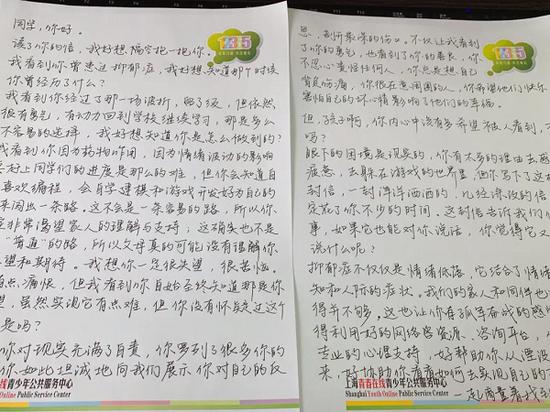 同学，你好。
读了你的信，我好想隔空抱一抱你。
我看到你曾患过抑郁症，我好想知道那个时候
你曾经历了什么？
我看到你经过了那一场波折，
很有勇气，有动力回到学校继续学习，那是多么
不容易的选择，我好想知道你是怎么做到的？
我看到你因为药物作用，因为情绪波动的影响
上同学们的进度是那么的难，但你会知道自
喜欢编程，会自学建模和游戏开发好为自己的
来闯出一条路，这不会是一条容易的路，所以你
非常渴望家人的理解与支持；这确实也不是
"普通"的路，所以父母真的可能没有理解你
望和期待。我想你一定很失望，很苦恼，
痛恨，但我看到你自始至终知道那是你
望，虽然实现它有点难，但你没有怀疑过这个
是吗？
你对现实充满了自责，你写到了很多你的
你如此坦诚地向我们展示你对自己的反
12355
在线青少年公共服务中心
Online Public Service Center
思，剖开最深的伤口。不仅让我看到
了你的勇气，也看到了你的善良，你
不忍心责怪任何人，你总是想自己
背负伤痛，你很在意周围的人，你希望他们快乐
害怕自己的坏心情影响了他们的幸福。
但，孩子啊，你内心中该有多希望被人看到，
吗？
眼下的困境是现实的，你有不多的理由去
去躲在游戏的世界里，但你写下了这
封信，一封洋洋洒洒的，几经深改的信
定花了你不少的时间，这封信告诉我们
事，如果它也能对你说话，你觉得它又
说什么呢？
抑郁症不仅仅是情绪低落，它结合了情绪
知和人际的症状。我们的家人和同伴也
得并不够，这也让你有孤军奋战的感
得利用好的网络资源、咨询平台，
专业的心理支持，好帮助你从
来，好协助你看看如何去实现自己的
一起商量着找
12355
上海青春在线青少年公共服务中心
Shanghai Youth Online Public Service Center